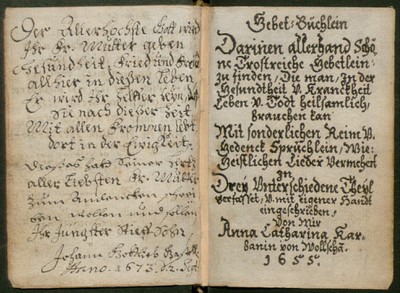 Der Allerhöchste Gott wird
Ihr Fr. Mütter geben
Gesundheit, Fried und
allhier in dießen Leben
Er wird Ihr Helfer
Sie nach dießer Zeit
Mit allen Frommen
dort in der Ewigkeit.
hatt Seiner
aller Liebsten Fr. Mütter
zum
wollen und sollen
Ihr Jüngster Stieff Sohn,
Johann Gottlieb
Anno. 1673.
Gebet-Büchlein
Darinen allerhand Schö
ne Trostreiche Gebetlein
zu finden, Die man, In der
Gesundtheit v. Kranckheit
Leben v. Todt heilsamlich,
brauchen kan
Mit sonderlichen Reim v.
Gedenck Sprüchlein, Wie:
Geistlichen Lieder Vermehrt
In
Drey Vnterschiedene Theyl
verfasset, v. mit eigener Handt
eingeschrieben,
Von Mir
Anna Catharina Kar
danin von Wollscha.
1655.